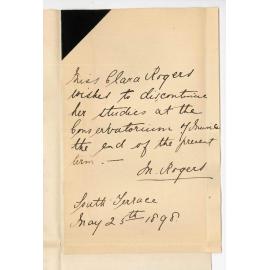 Miss Clara Rogers
wishes to discontinue
her studies at the
Conservatorium of Music
the end of the present
term. —
M. Rogers
South Terrace
May 25th 1898